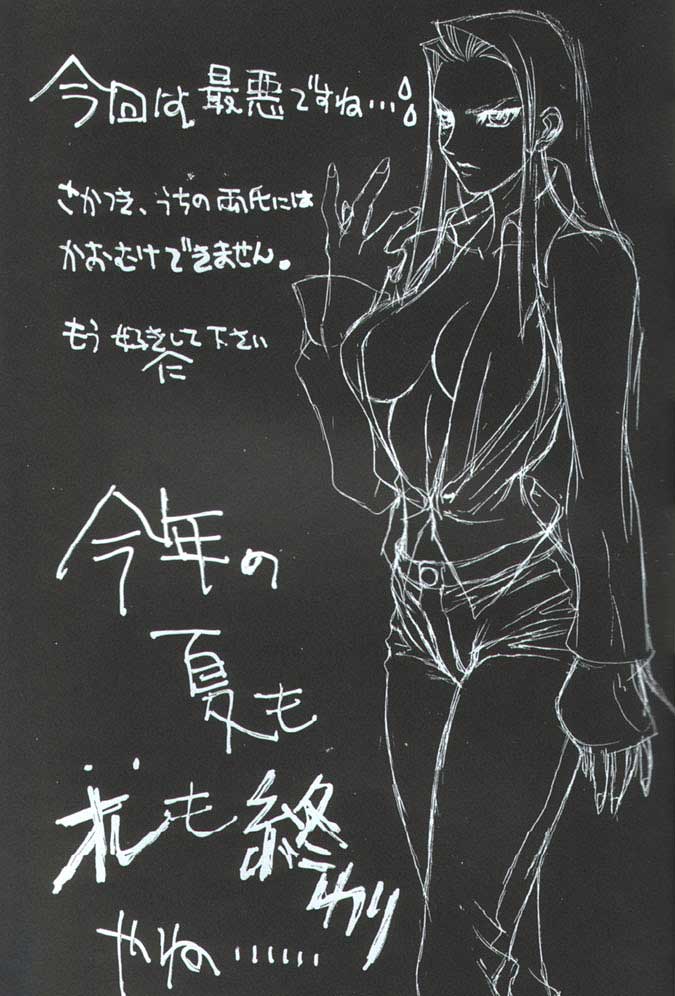 今回は最悪ですね…
さかつき、うちの両氏には
かおむけできません。
もう好きにして下さい
今年の
夏も
オレも終わり
やね……